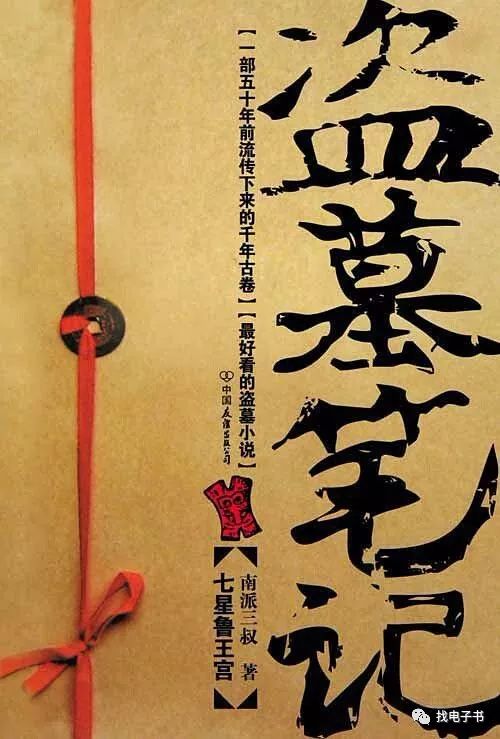 盗墓笔记
【一部五十年前流传下来的千年古卷】【最好看的盗墓小说】
中国友谊出版公司
南派三叔 著
【七星鲁王宫】
找电子书